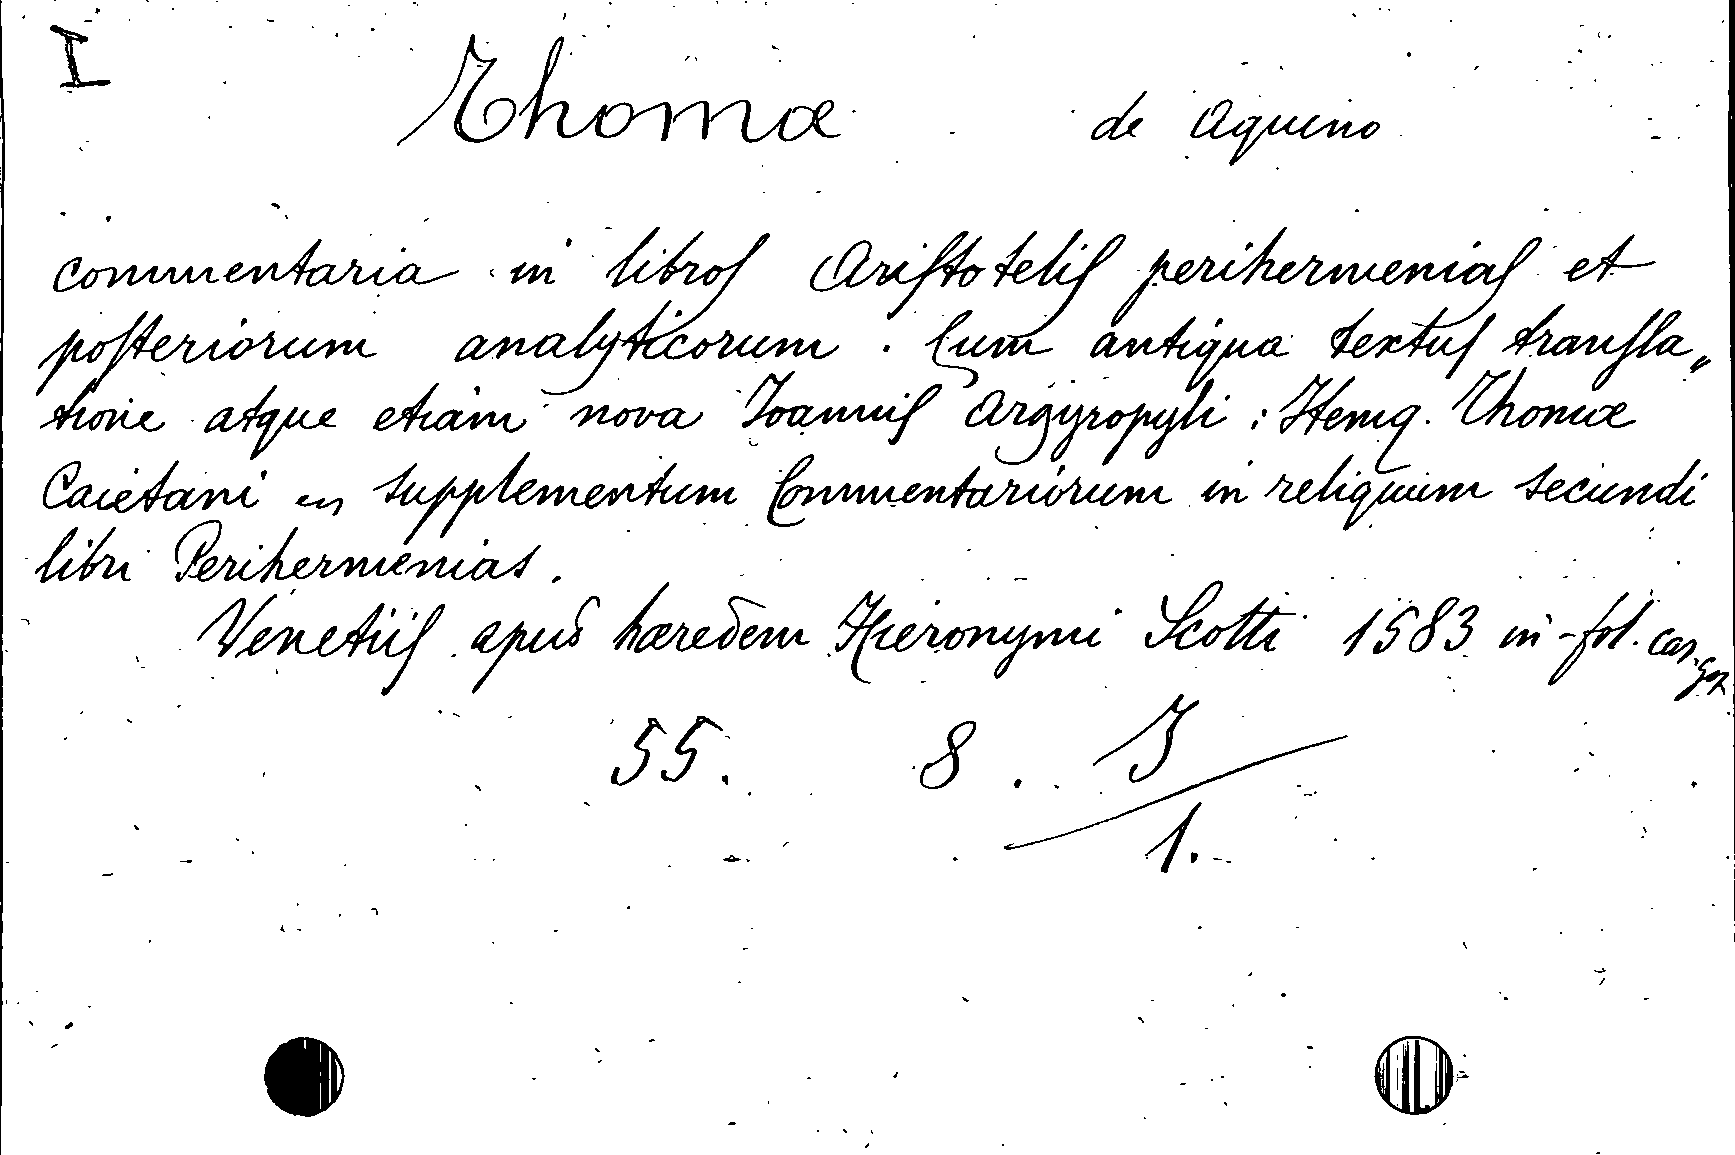 I
Thomæ de Aquino
commentaria in libros Aristotelis perihermenias et
posteriorum analyticorum . Cum antiqua textus transla„
tione atque etiam nova Joannis Argyropyli : Itemq. Thomæ
Caietani supplementum Commentariorum in reliquum secundi
libri Perihermenias .
Venetiis apud hæredem Hieronymi Scotti 1583 in-fol. car. goz
55. 8 . J
1.